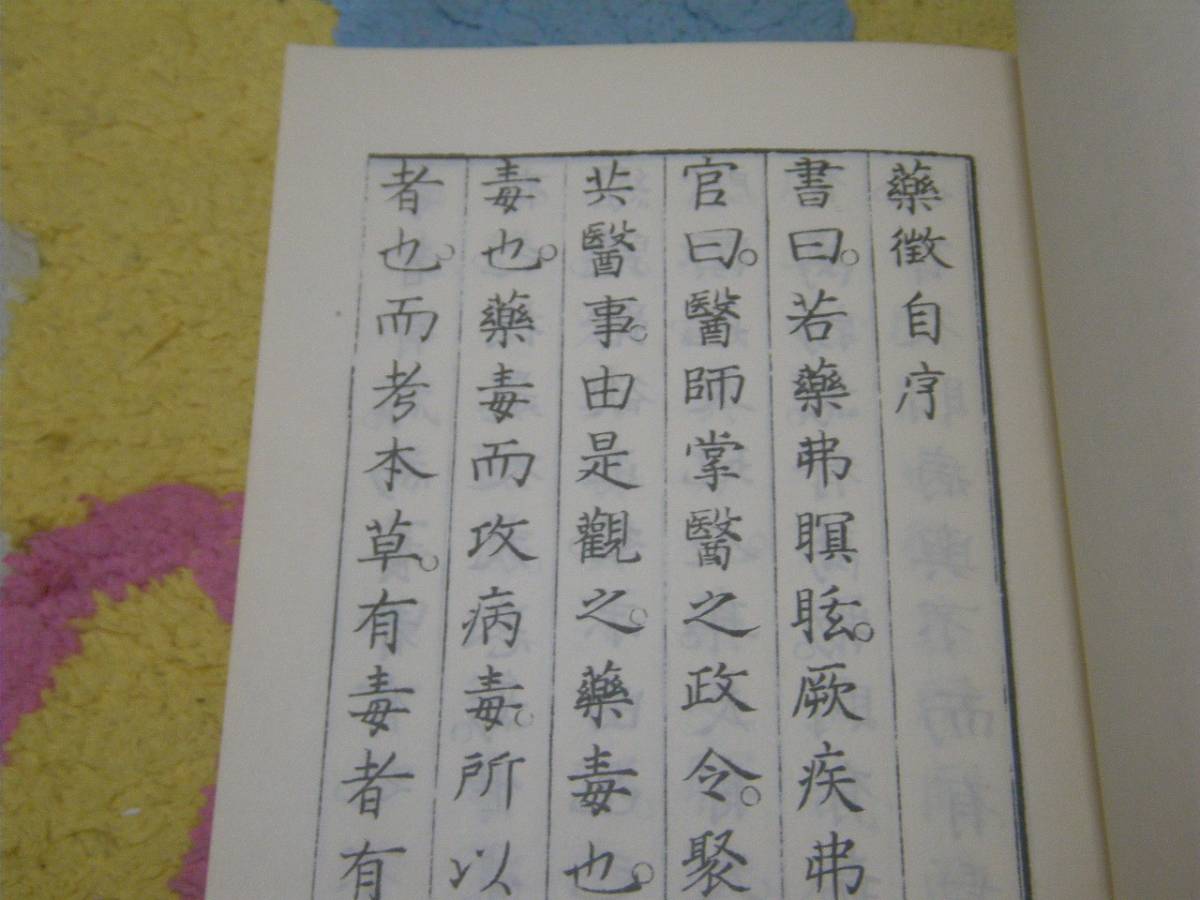 藥徵自序
書曰。若藥弗瞑眩。厥疾弗
官曰。醫師掌醫之政令。聚
共醫事。由是觀之。藥毒也。
毒也。藥毒而攻病毒。所以
者也。而考本草。有毒者有